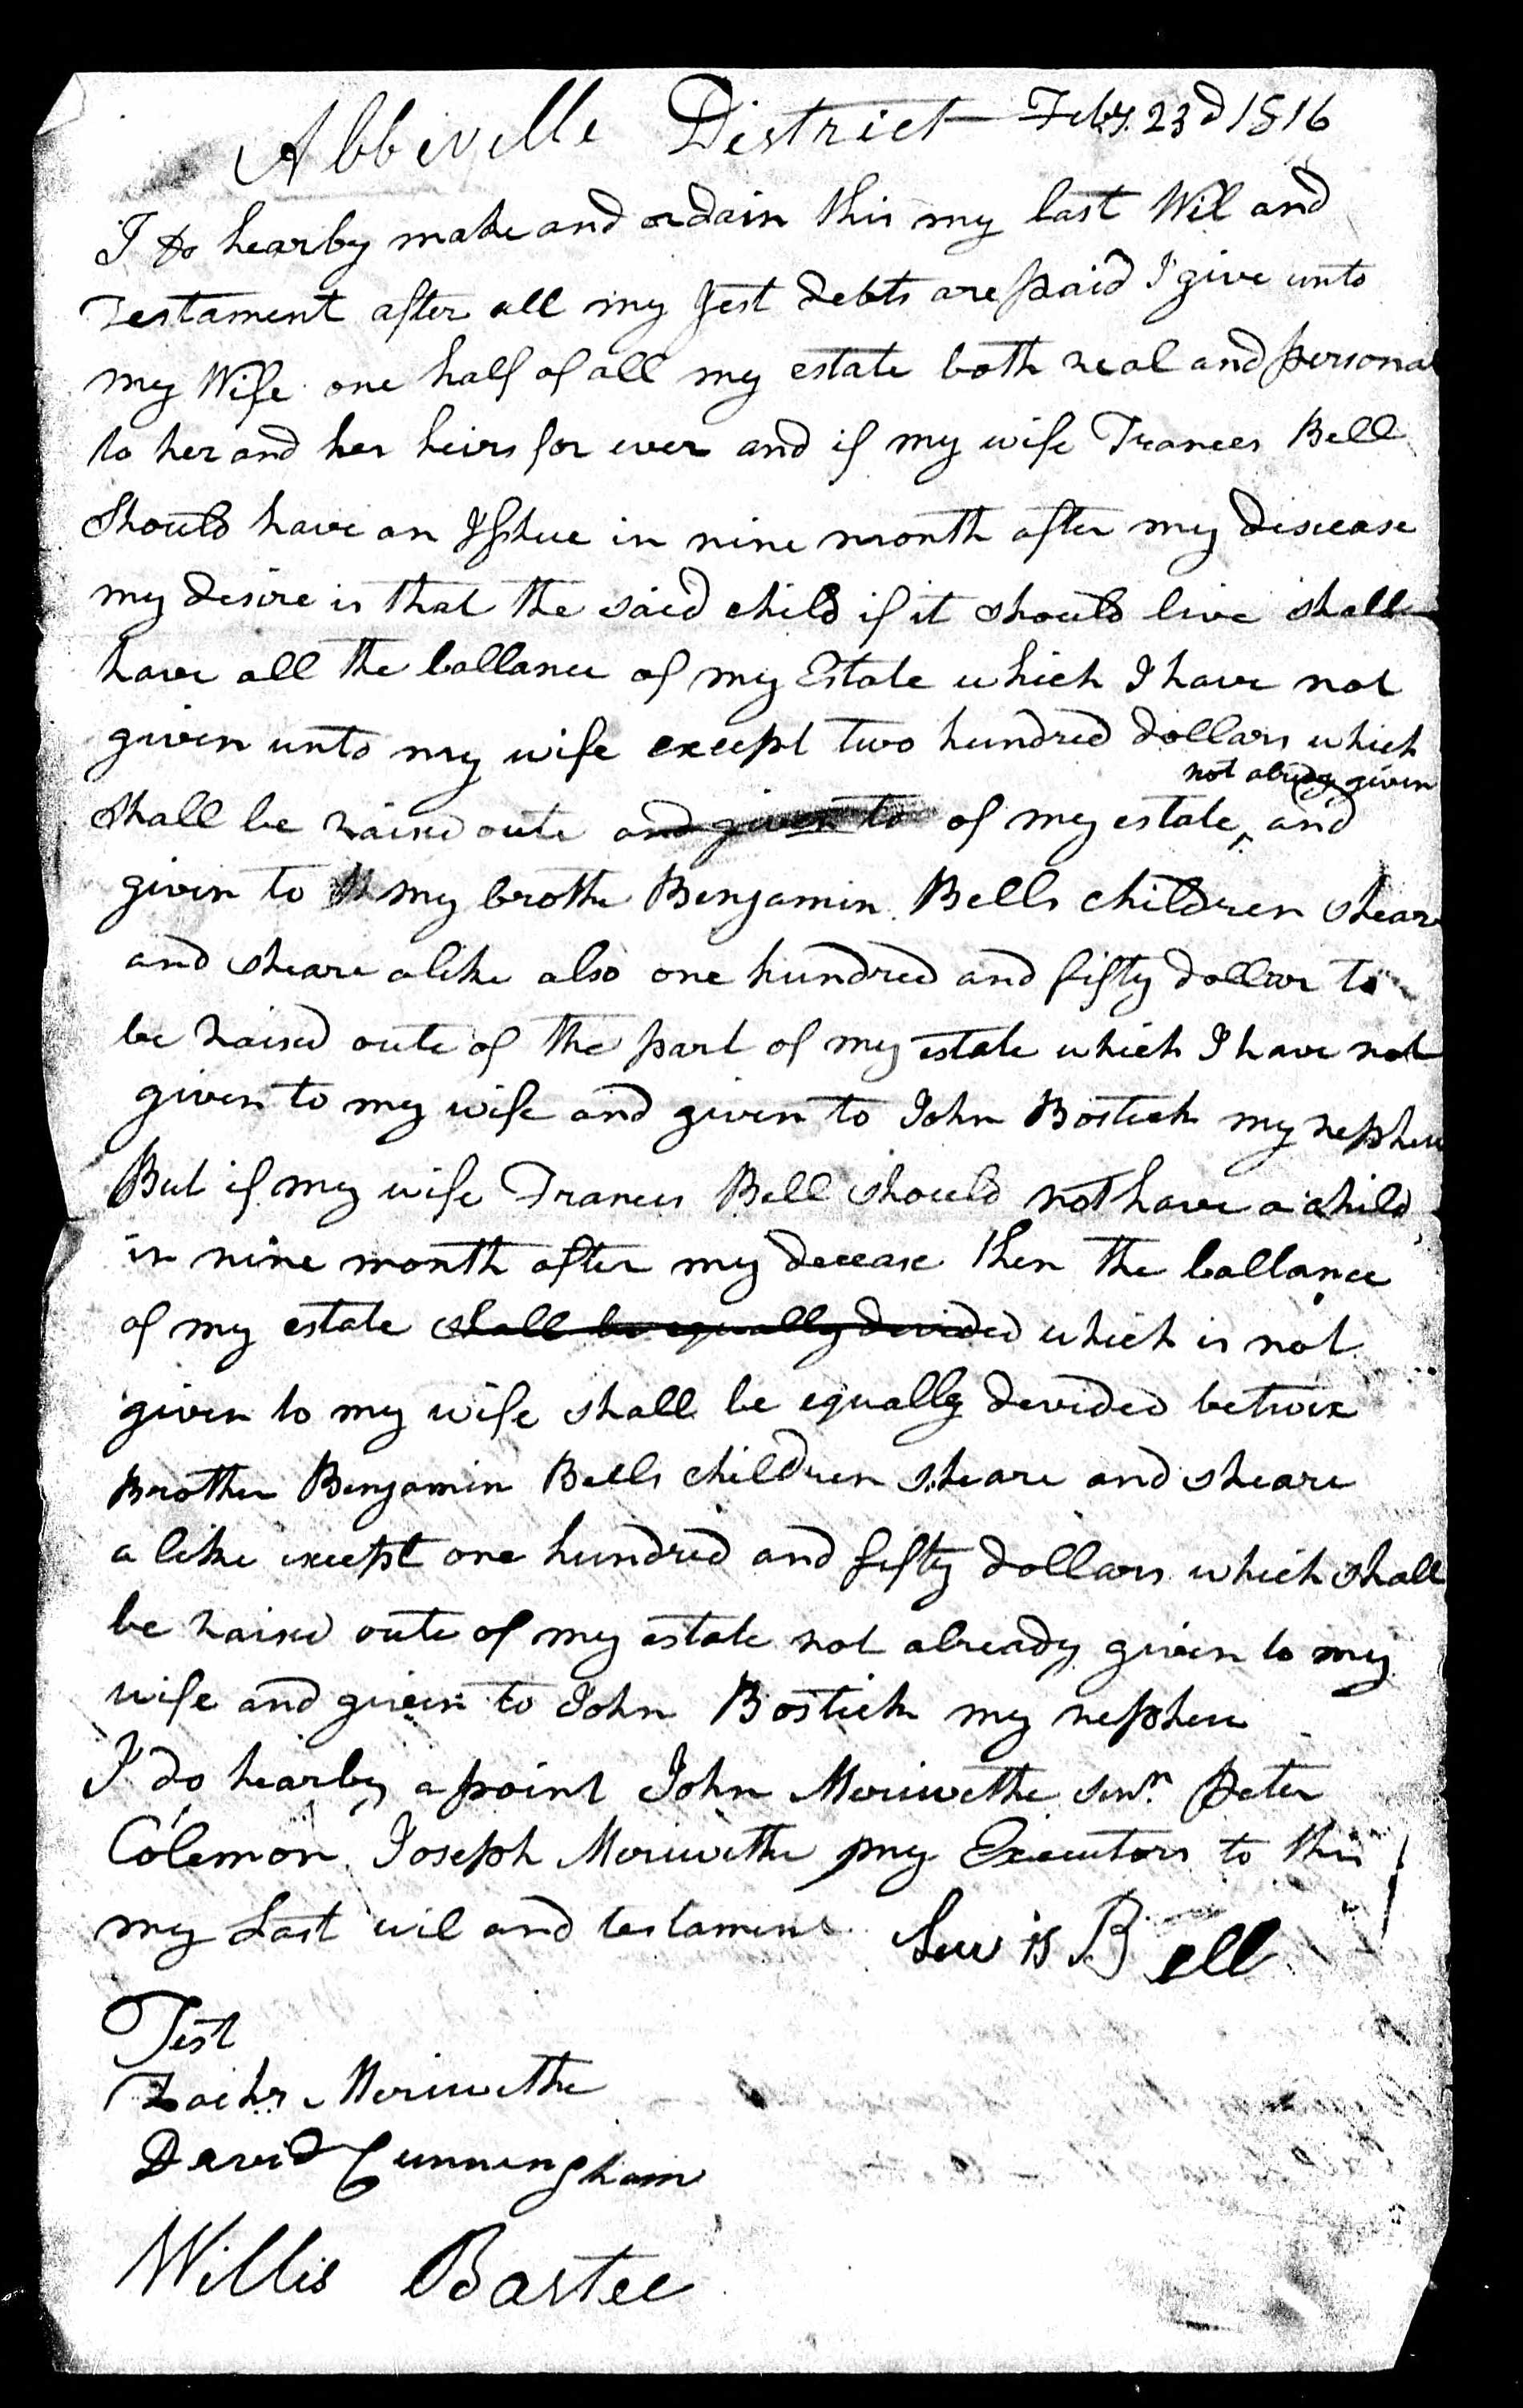 Abbeville District Feby. 23d 1816
I do hearby make and ordain this my last Wil and
Testament after all my Jest debts are paid I give unto
my Wife one half of all my estate both real and personal
to her and her heirs for ever and if my wife Frances Bell
Should have an Isshue in nine month after my discease
my desire is that the said child if it should live shall
have all the ballance of my Estate which I have not
given unto my wife except two hundred dollars which
not alredy given
shall be raised oute and given to of my estate, and
given to my brothe Benjamin Bells children sheare
and sheare alike also one hundred and fifty dollar to
be raised oute of the part of my estate which I have not
given to my wife and given to John Bostick my nephew
But if my wife Frances Bell should not have a child
in nine month after my decease then the ballance
of my estate shall be equally devided which is not
given to my wife shall be equally devided betwix
Brother Benjamin Bells children sheare and sheare
a like except one hundred and fifty dollars which shall
be raised oute of my estate not already given to my
wife and given to John Bostick my nephew
I do hearby apoint John Meriwethe Senr. Peter
Colemon Joseph Meriwethe my Executors to this
my Last wil and testament Lewis Bell
Test
Zachr Meriwethe
David Cunningham
Willis Bartee